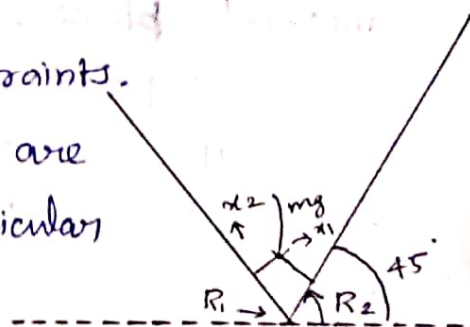 raints.
are
icular
x2 mg
↑ → x1
45°
R1 → R2